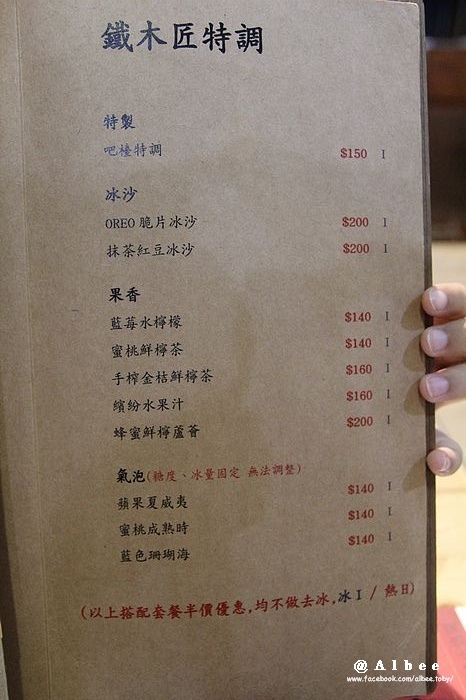 鐵木匠特調
特製
吧檯特調 $150 I
冰沙
OREO 脆片冰沙 $200 I
抹茶紅豆冰沙 $200 I
果香
藍莓水檸檬 $140 I
蜜桃鮮檸茶 $140 I
手榨金桔鮮檸茶 $160 I
繽紛水果汁 $160 I
蜂蜜鮮檸蘆薈 $200 I
氣泡(糖度、冰量固定 無法調整)
蘋果夏威夷 $140 I
蜜桃成熟時 $140 I
藍色珊瑚海 $140 I
(以上搭配套餐半價優惠,均不做去冰,冰 I / 熱 H)
@Albee
www.facebook.com/albee.toby/